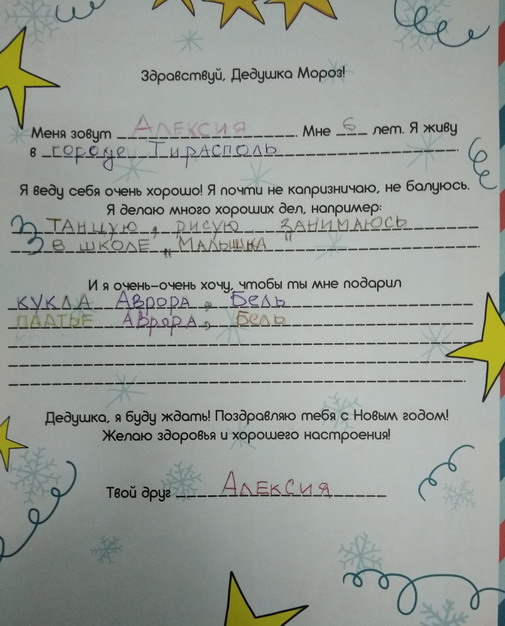 Здравствуй, Дедушка Мороз!
Меня зовут Алексия. Мне 6 лет. Я живу
в городе Тирасполь.
Я веду себя очень хорошо! Я почти не капризничаю, не балуюсь.
Я делаю много хороших дел, например:
танцую, рисую занимаюсь
в школе „Малышка".
И я очень-очень хочу, чтобы ты мне подарил
кукла Аврора, Бель
платье Аврора, Бель
Дедушка, я буду ждать! Поздравляю тебя с Новым годом!
Желаю здоровья и хорошего настроения!
Твой друг Алексия